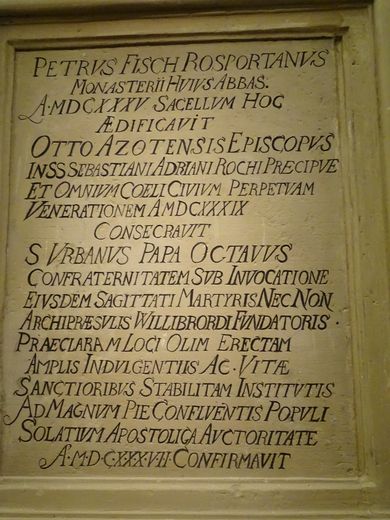 PETRVS FISCH ROSPORTANVS
MONASTERII HVIVS ABBAS.
A·MDCXXXV SACELLVM HOC
ÆDIFICAVIT
OTTO AZOTENSIS EPISCOPVS
IN SS SEBASTIANI ADRIANI ROCHI PRÆCIPVE
ET OMNIVM COELI CIVIVM PERPETVAM
VENERATIONEM A MDCXXXIX
CONSECRAVIT
S VRBANVS PAPA OCTAVVS
CONFRATERNITATEM SVB INVOCATIONE
EIVSDEM SAGITTATI MARTYRIS NEC NON
ARCHIPRÆSVLIS WILLIBRORDI FVNDATORIS·
PRAECLARAM LOCI OLIM ERECTAM
AMPLIS INDVLGENTIIS AC·VITÆ
SANCTIORIBVS STABILITAM INSTITVTIS
AD MAGNVM PIE CONFLVENTIS POPVLI
SOLATIVM APOSTOLICA AVCTORITATE
A·M·D·CXXXVII·CONFIRMAVIT